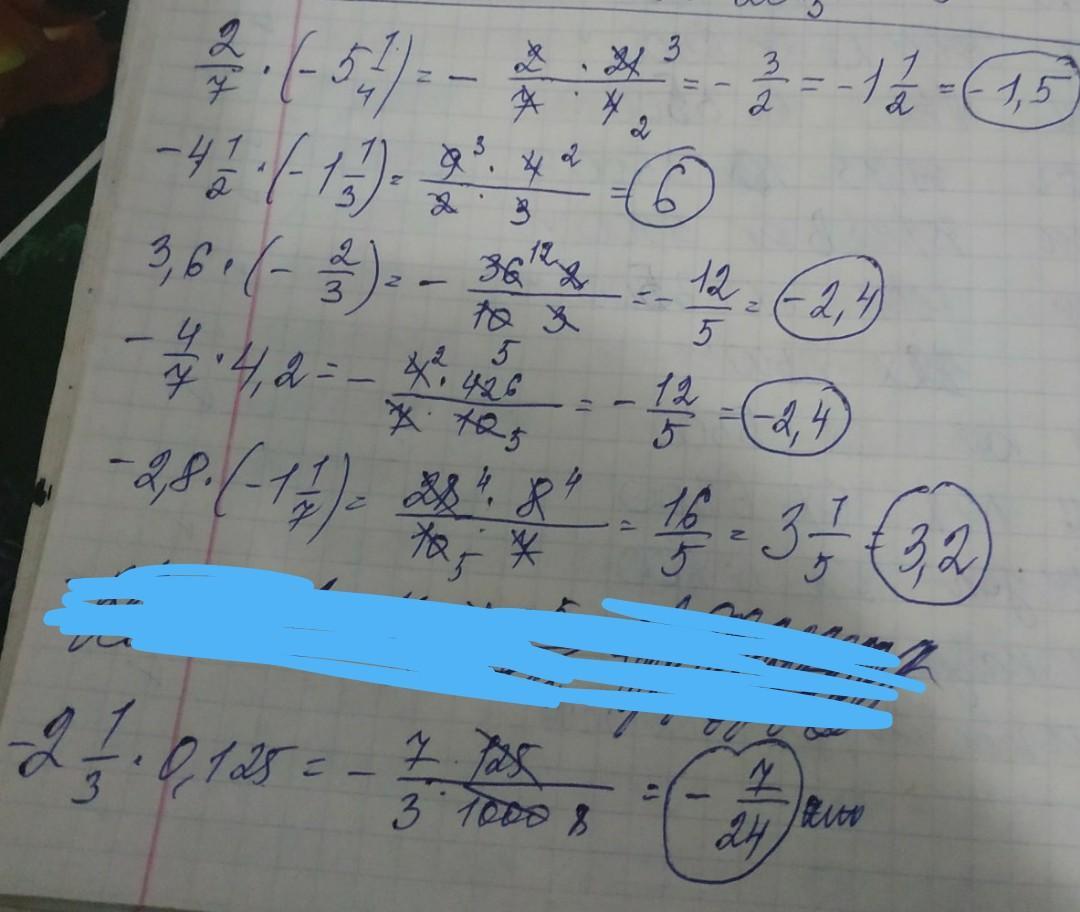 2/7 · (- 5 1/4) = - (2 · 21 3)/(7 · 4 2) = - 3/2 = -1 1/2 = -1,5
-4 1/2 · (-1 1/3) = (9 3 · 4 2)/(2 · 3) = 6
3,6 · (- 2/3) = - (36 12 2)/(10 5 3) = - 12/5 = -2,4
- 4/7 · 4,2 = - (4 2 · 42 6)/(7 · 10 5) = - 12/5 = -2,4
-2,8 · (-1 1/7) = (28 4 · 8 4)/(10 5 · 7) = 16/5 = 3 1/5 = 3,2
-2 1/3 · 0,125 = - (7 · 125)/(3 · 1000 8) = - 7/24